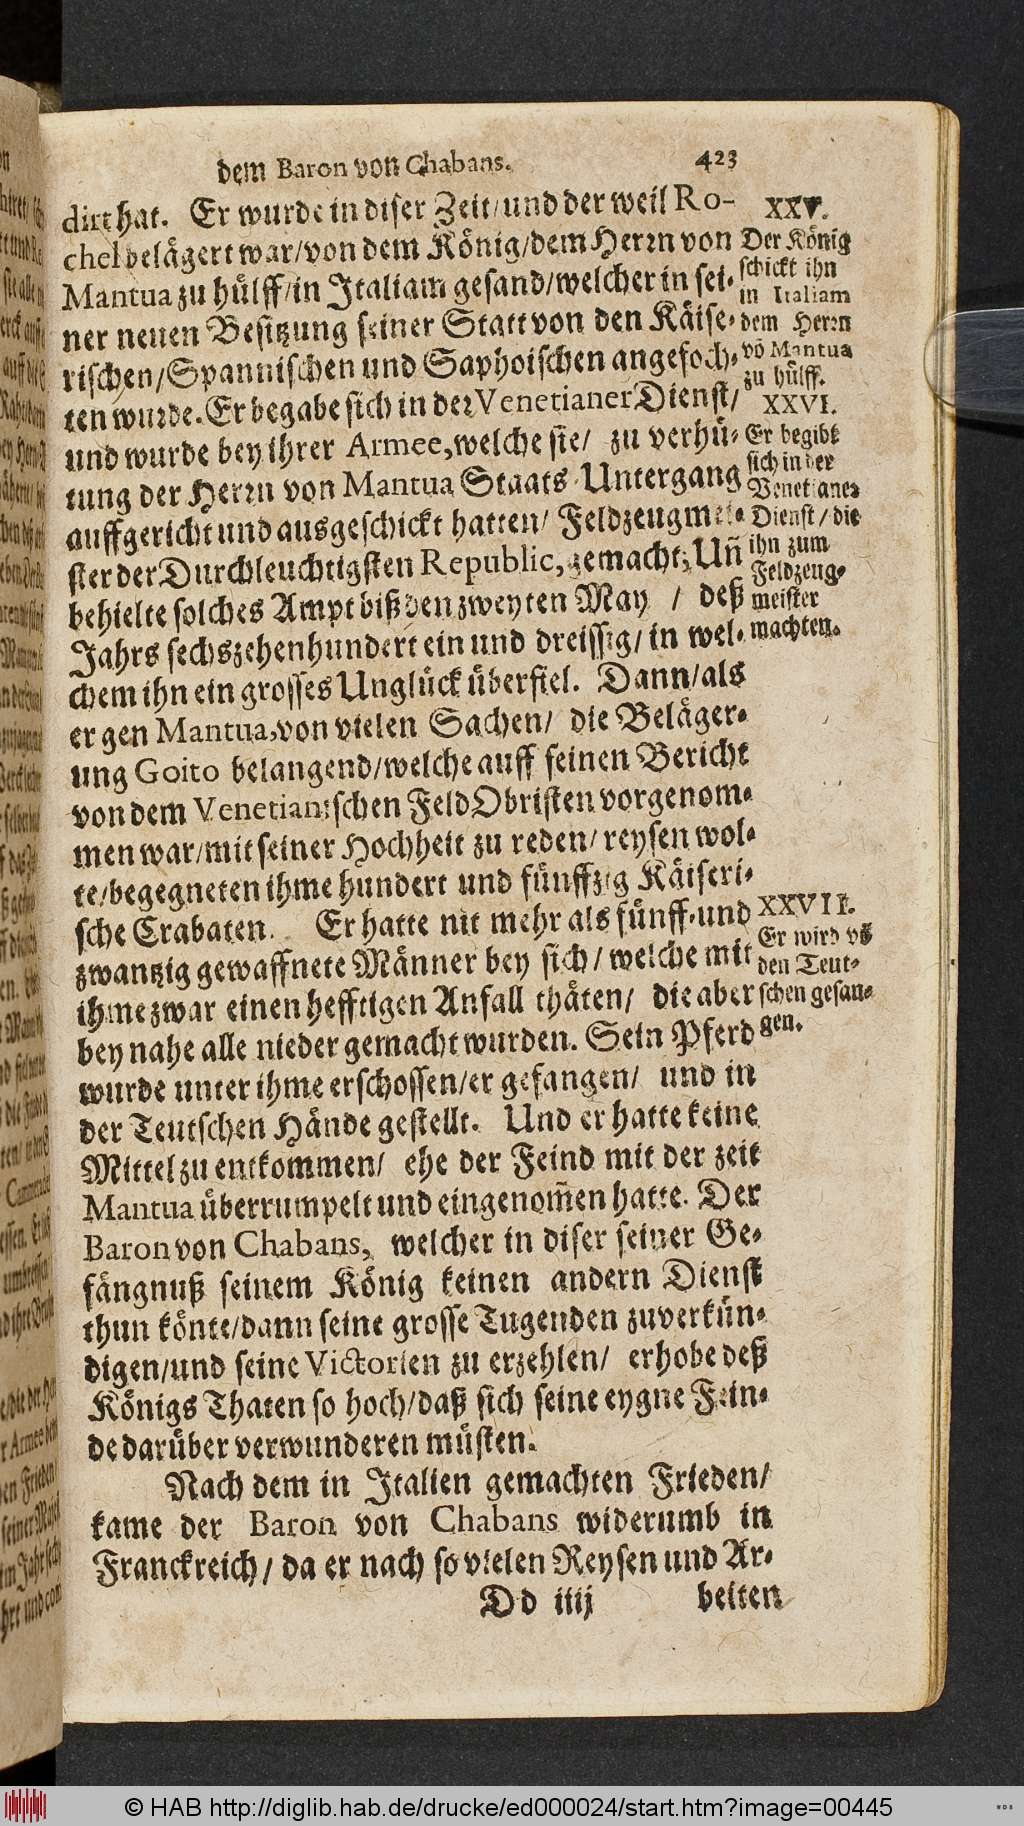 dem Baron von Chabans. 423
dirt hat. Er wurde in diser Zeit/und der weil Ro-
chel belägert war/von dem König/dem Herrn von
Mantua zu hülff/in Italiam gesand/welcher in sei-
ner neuen Besitzung seiner Statt von den Käise-
rischen/Spannischen und Saphoischen angefoch-
ten wurde. Er begabe sich in der Venetianer Dienst/
und wurde bey ihrer Armee, welche sie/ zu verhü-
tung der Herrn von Mantua Staats Untergang
auffgericht und ausgeschickt hatten/ Feldzeugmei-
ster der Durchleuchtigsten Republic, gemacht; Uñ
behielte solches Ampt biß den zweyten May / deß
Jahrs sechszehenhundert ein und dreissig/ in wel-
chem ihn ein grosses Unglück überfiel. Dann/als
er gen Mantua, von vielen Sachen/ die Beläger-
ung Goito belangend/welche auff seinen Bericht
von dem Venetianischen FeldObristen vorgenom-
men war/mit seiner Hochheit zu reden/ reysen wol-
te/begegneten ihme hundert und fünffzig Käiseri-
sche Crabaten. Er hatte nit mehr als fünff-und
zwantzig gewaffnete Männer bey sich/ welche mit
ihme zwar einen hefftigen Anfall thäten/ die aber
bey nahe alle nieder gemacht wurden. Sein Pferd
wurde unter ihme erschossen/er gefangen/ und in
der Teutschen Hände gestellt. Und er hatte keine
Mittel zu entkommen/ ehe der Feind mit der zeit
Mantua überrumpelt und eingenom̄en hatte. Der
Baron von Chabans, welcher in diser seiner Ge-
fängnuß seinem König keinen andern Dienst
thun könte/dann seine grosse Tugenden zuverkün-
digen/und seine Victorien zu erzehlen/ erhobe deß
Königs Thaten so hoch/daß sich seine eygne Fein-
de darüber verwunderen müsten.
Nach dem in Italien gemachten Frieden/
kame der Baron von Chabans widerumb in
Franckreich/ da er nach so vielen Reysen und Ar-
Dd iiij beiten
XXV.
Der König
schickt ihn
in Italiam
dem Herrn
võ Mantua
zu hülff.
XXVI.
Er begibt
sich in der
Venetianer
Dienst/ die
ihn zum
Feldzeug-
meister
machten.
XXVII.
Er wird võ
den Teut-
schen gefan-
gen.
© HAB http://diglib.hab.de/drucke/ed000024/start.htm?image=00445